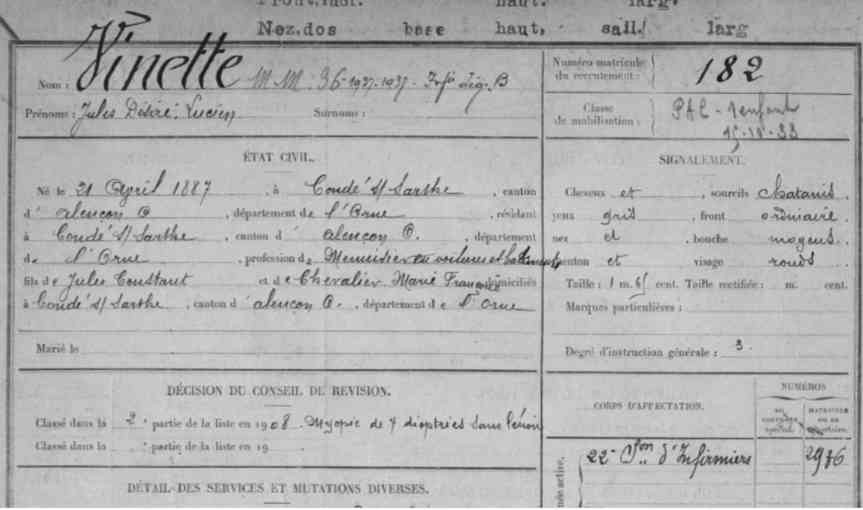 Front.incl. haut. larg.
Nez.dos base haut. saill. larg
Nom : Vinette M.M. 36-1937-1937-
Prénoms : Jules Désiré, Lucien Surnoms :
Numéro matricule du recrutement : 182
Classe de mobilisation : PAC - 1 enfant
ÉTAT CIVIL.
Né le 21 April 1887, à Condé s/ Sarthe, canton
d' alençon O, département de l'Orne, résidant
à Condé s/ Sarthe, canton d' alençon O., département
de l'Orne, profession de Menuisier en voitures et
fils de Jules Constant et de Chevalier Marie Françoise domiciliés
à Condé s/ Sarthe, canton d' alençon O., département de l'Orne
Marié le
SIGNALEMENT.
Cheveux et , sourcils chatains.
yeux gris , front ordinaire
nez et , bouche moyens
menton et visage ronds
Taille : 1 m. 65 cent. Taille rectifiée : m. cent.
Marques particulières :
Degré d'instruction générale : 3.
DÉCISION DU CONSEIL DE REVISION.
Classé dans la 2e partie de la liste en 1908. Myopie de 7 dioptries sans lésion
Classé dans la e partie de la liste en 19
DÉTAIL DES SERVICES ET MUTATIONS DIVERSES.
CORPS D'AFFECTATION.
NUMÉROS
22e Son d'Infirmiers